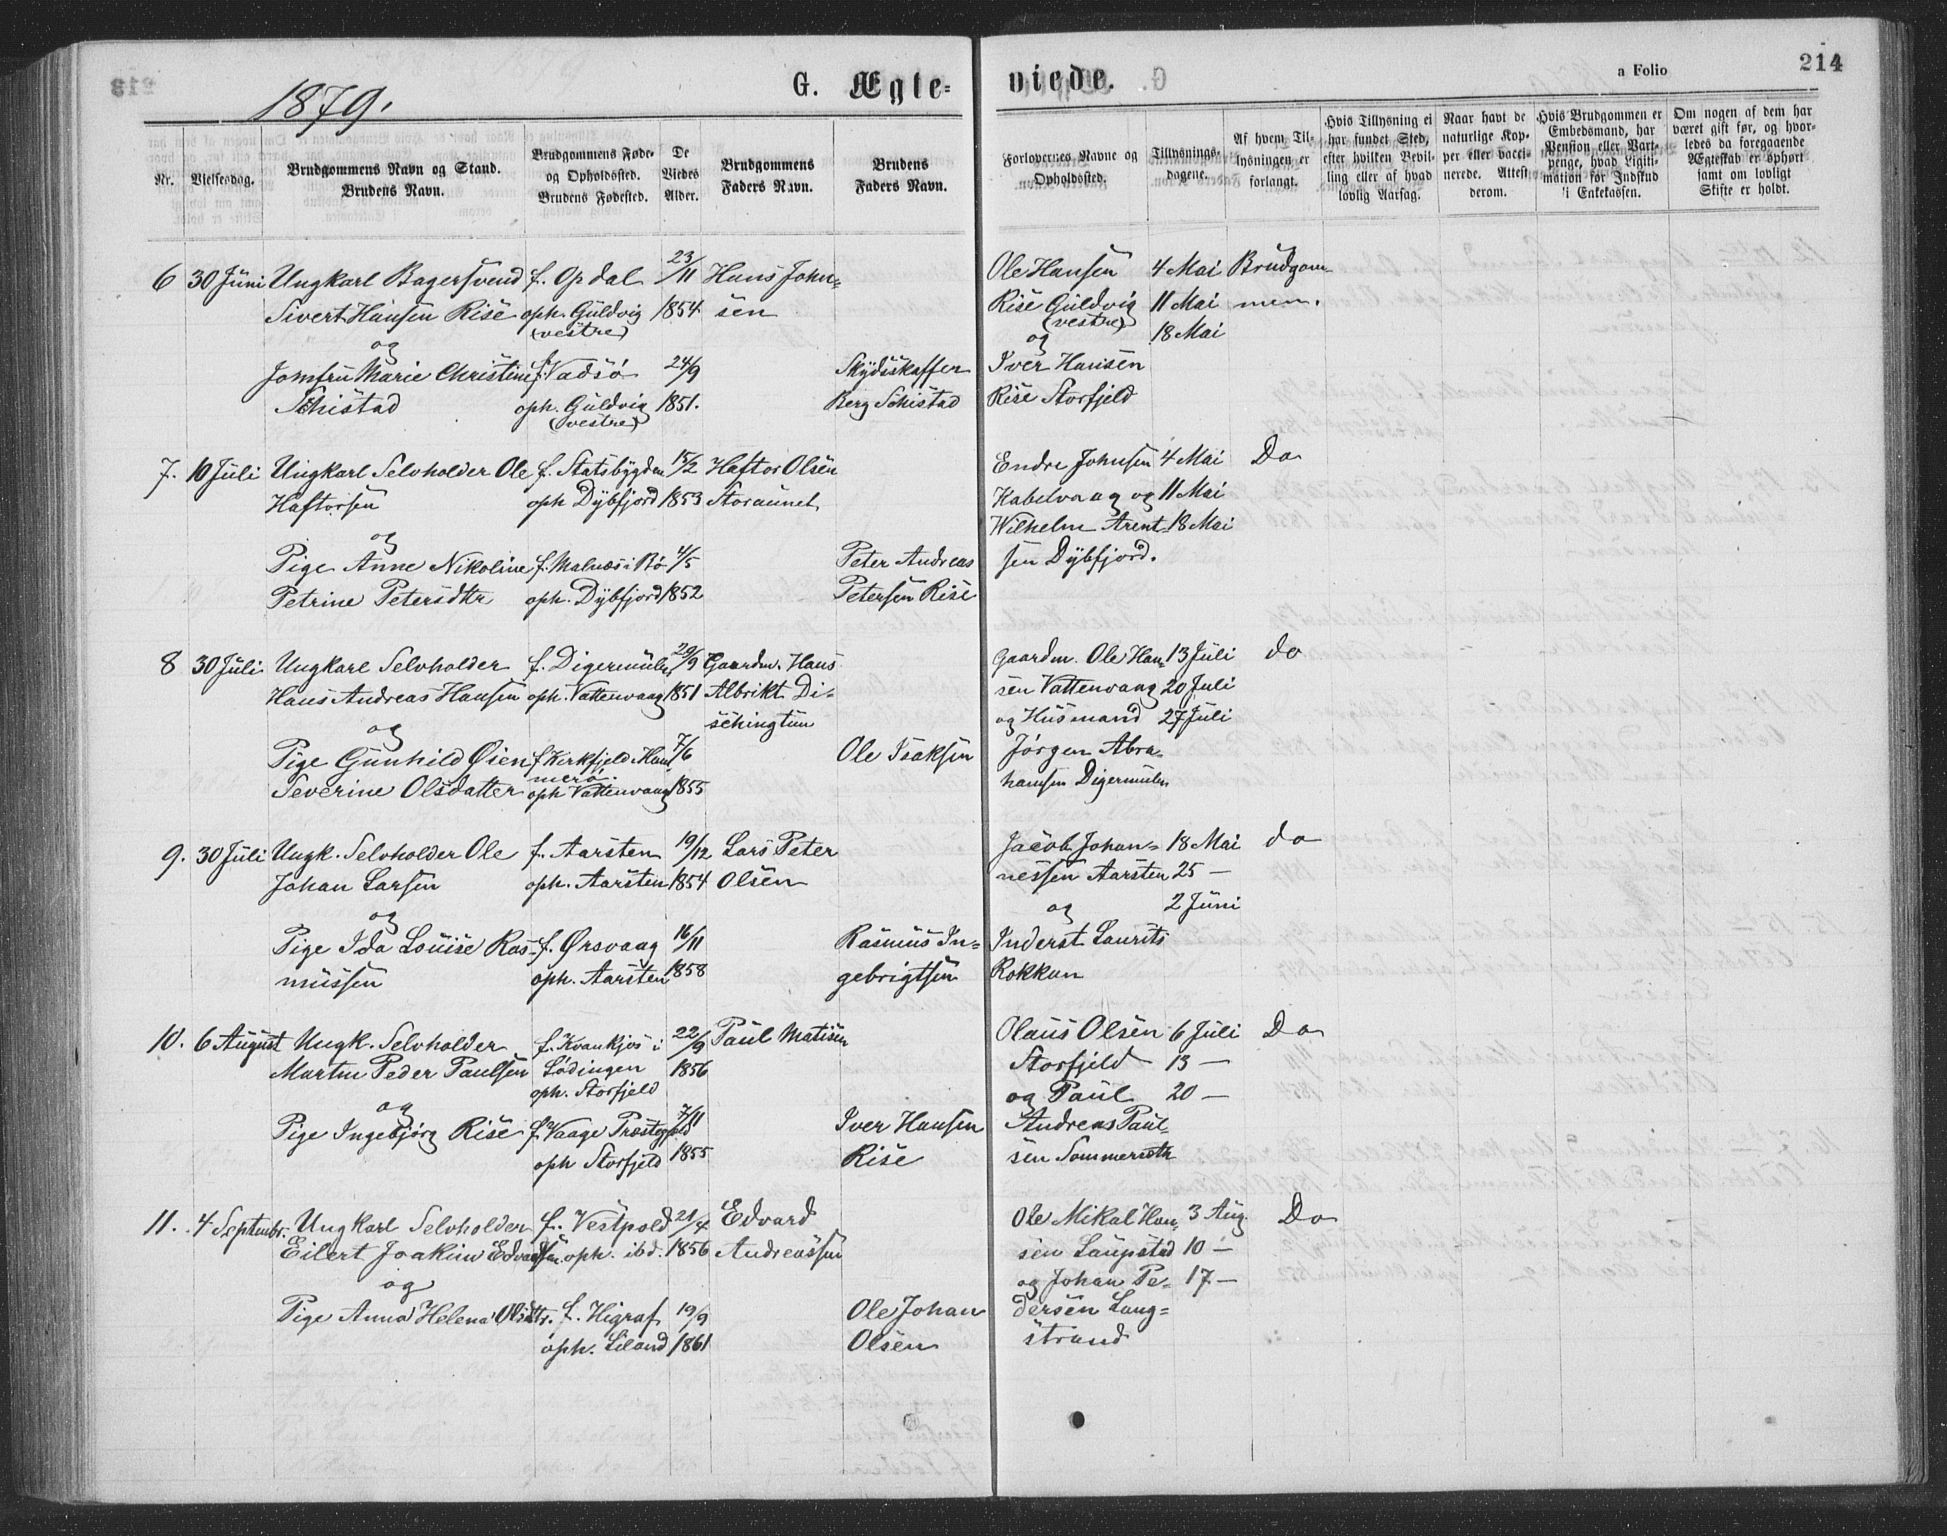 213
1879.
G. Ægte=
viede.
a Folio
214
Nr.
Vielsesdag.
Brudgommens Navn og Stand.
Brudens Navn.
Brudgommens Føde-
og Opholdssted.
Brudens Fødested.
De
Viedes
Alder.
Brudgommens
Faders Navn.
Brudens
Faders Navn.
Forlovernes Navne og
Opholdssted.
Tillysnings-
dagene.
Af hvem Til-
lysningen er
forlangt.
Hvis Tillysning ei
har fundet Sted,
efter hvilken Bevil-
ling eller af hvad
lovlig Aarsag.
Naar havt de
naturlige Kop-
per eller vacci-
nerede. Attest
derom.
Hvis Brudgommen er
Embedsmand, har
Pension eller Vart-
penge, hvad Ligiti-
mation for Indskud
i Enkekassen.
Om nogen af dem har
været gift før, og hvor-
ledes da foregaaende
Ægteskab er ophørt
samt om lovligt
Skifte er holdt.
6 30 Juni Ungkarl Bagersvend f. Opdal 23/11 Hans John= Ole Hansen 4 Mai Brudgom
Sivert Hansen Rise oph. Guldvig 1854 sen Rise Guldvig 11 Mai men.
(vestre) (vestre)
og og 18 Mai
Jomfru Marie Christine f. Vadsø 24/9 Skydsskaffer Iver Hansen
Schistad oph. Guldvig 1851. Berg Schistad Rise Storfjeld
(vestre)
7. 10 Juli Ungkarl Selvholder Ole f. Statsbygden 15/2 Haftor Olsen Endre Johnsen 4 Mai Do
Haftorsen oph Dybfjord 1853 Storaunet Kabelvaag og 11 Mai
og Wilhelm Arent 18 Mai
Pige Anne Nikoline f. Malnæs i Bø 4/5 Peter Andreas sen Dybfjord.
Petrine Petersdtr oph. Dybfjord 1852 Petersen Rise
8 30 Juli Ungkarl Selvholder f. Digermulen 29/9 Gaardm. Hans Gaardm. Ole Han= 13 Juli do
Hans Andreas Hansen oph. Vattenvaag 1851 Albrikt Di- sen Vattenvaag 20 Juli
og schingtun og Husmand 27 Juli
Pige Gunhild Øien f. Kirkfjeld i Ham 7/6 Ole Isaksen Jørgen Abra=
merø.
Severine Olsdatter oph Vattenvaag 1855 hamsen Digermulen
9. 30 Juli Ungk. Selvholder Ole f. Aarsten 19/12 Lars Peter Jacob Johan= 18 Mai do
Johan Larsen oph. Aarsten 1854 Olsen nessen Aarsten 25 —
og og 2 Juni
Pige Ida Louise Ras- f. Ørsvaag 16/11 Rasmus In= Inderst Laurits
mussen oph. Aarsten 1858 gebrigtsen Rokkan
10. 6 August Ungk. Selvholder f. Kvankjos i 22/9 Paul Matisen Olaus Olsen 6 Juli Do
Martin Peder Paulsen Lødingen 1856 Storfjeld 13 —
oph. Storfjeld og Paul 20 —
og
Pige Ingebjørg Rise f. Vaage Præstegjeld 7/11 Iver Hansen Andreas Paul-
oph Storfjeld 1855 Rise sen Sommerseth
11. 4 Septembr. Ungkarl Selvholder f. Vestpold 21/4 Edvard Ole Mikal Han, 3 Aug. Do
Eilert Joakim Edvardsen. oph. ibd. 1856 Andreassen sen Laupstad 10 —
og og Johan Pe= 17 —
Pige Anna Helena Olsdtr. f. Higraf 19/9 Ole Johan dersen Lang=
oph. Liland 1861 Olsen strand